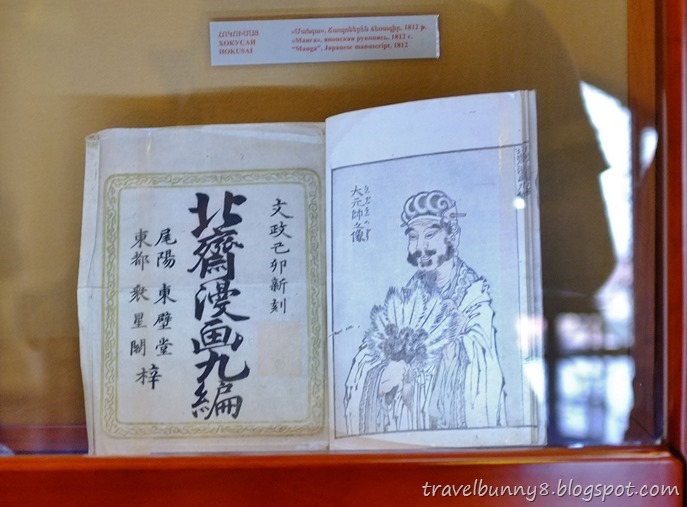 ՀՈԿՈՒՍԱՅ
ХОКУСАЙ
HOKUSAI
«Մանգա», ճապոներեն ձեռագիր, 1812 թ.
«Манга», японская рукопись, 1812 г.
"Manga", Japanese manuscript, 1812
文政己卯新刻
北齋漫画九編
尾陽 東壁堂
東都 衆星閣 梓
大元帥之像
travelbunny8.blogspot.com